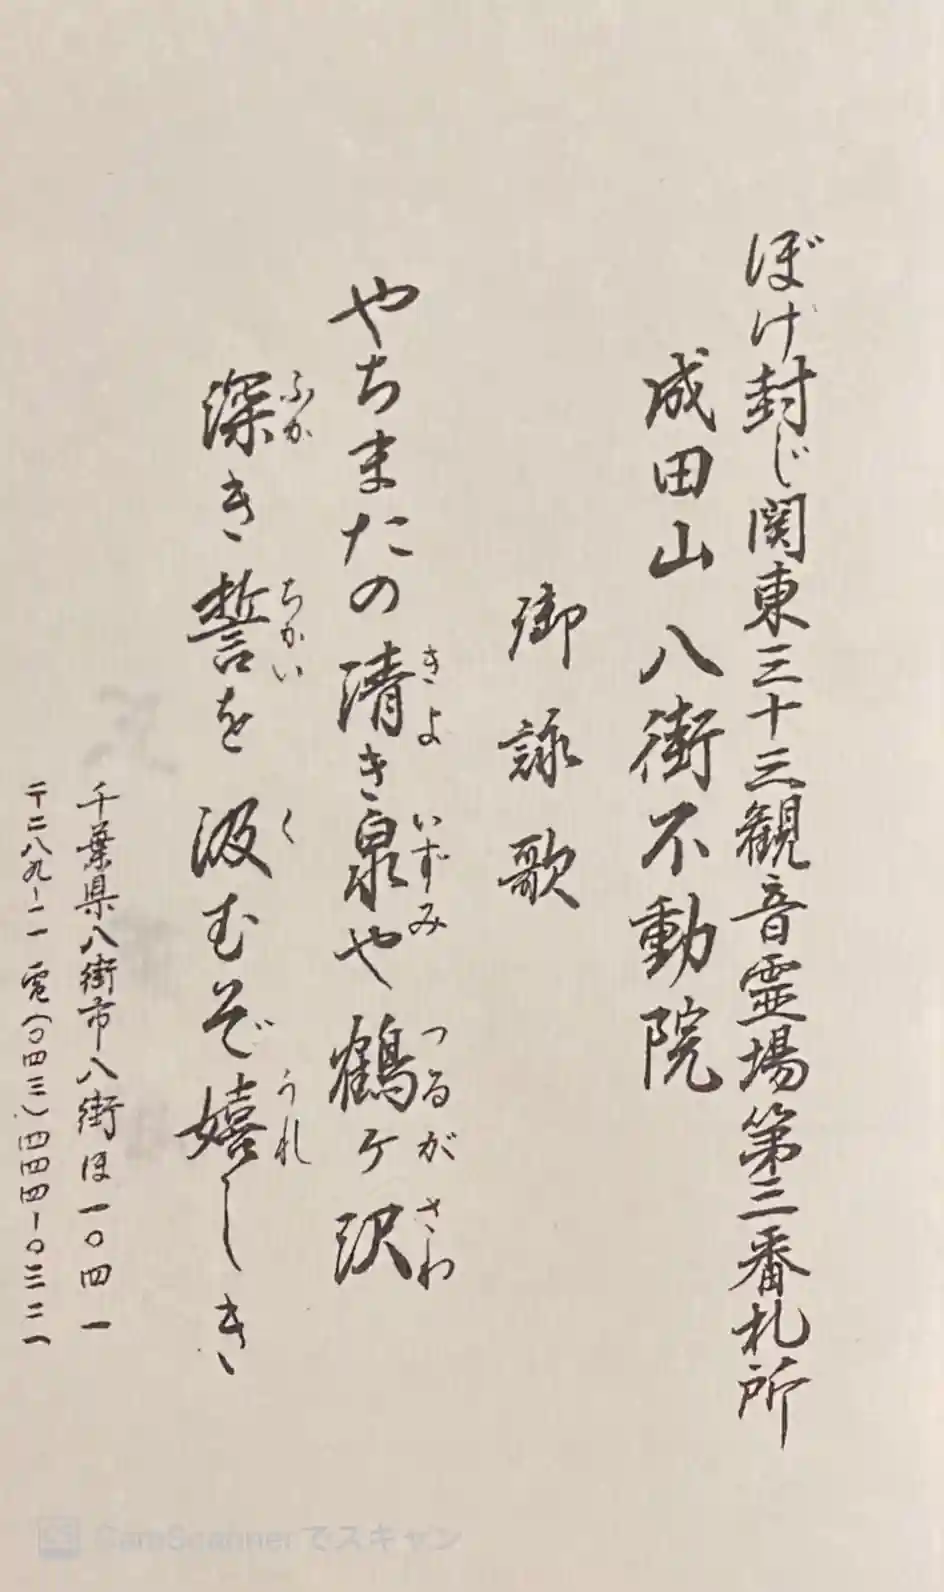 ぼけ封じ関東三十三観音霊場第三番札所
成田山 八街不動院
御詠歌
やちまたの清き泉や鶴ヶ沢
きよ いずみ つるがさわ
深き誓を汲むぞ嬉しき
ふか ちかい く うれ
千葉県八街市八街ほ一〇四一
〒二八九-一一 電(〇四三)四四四-〇三二一
CamScannerでスキャン